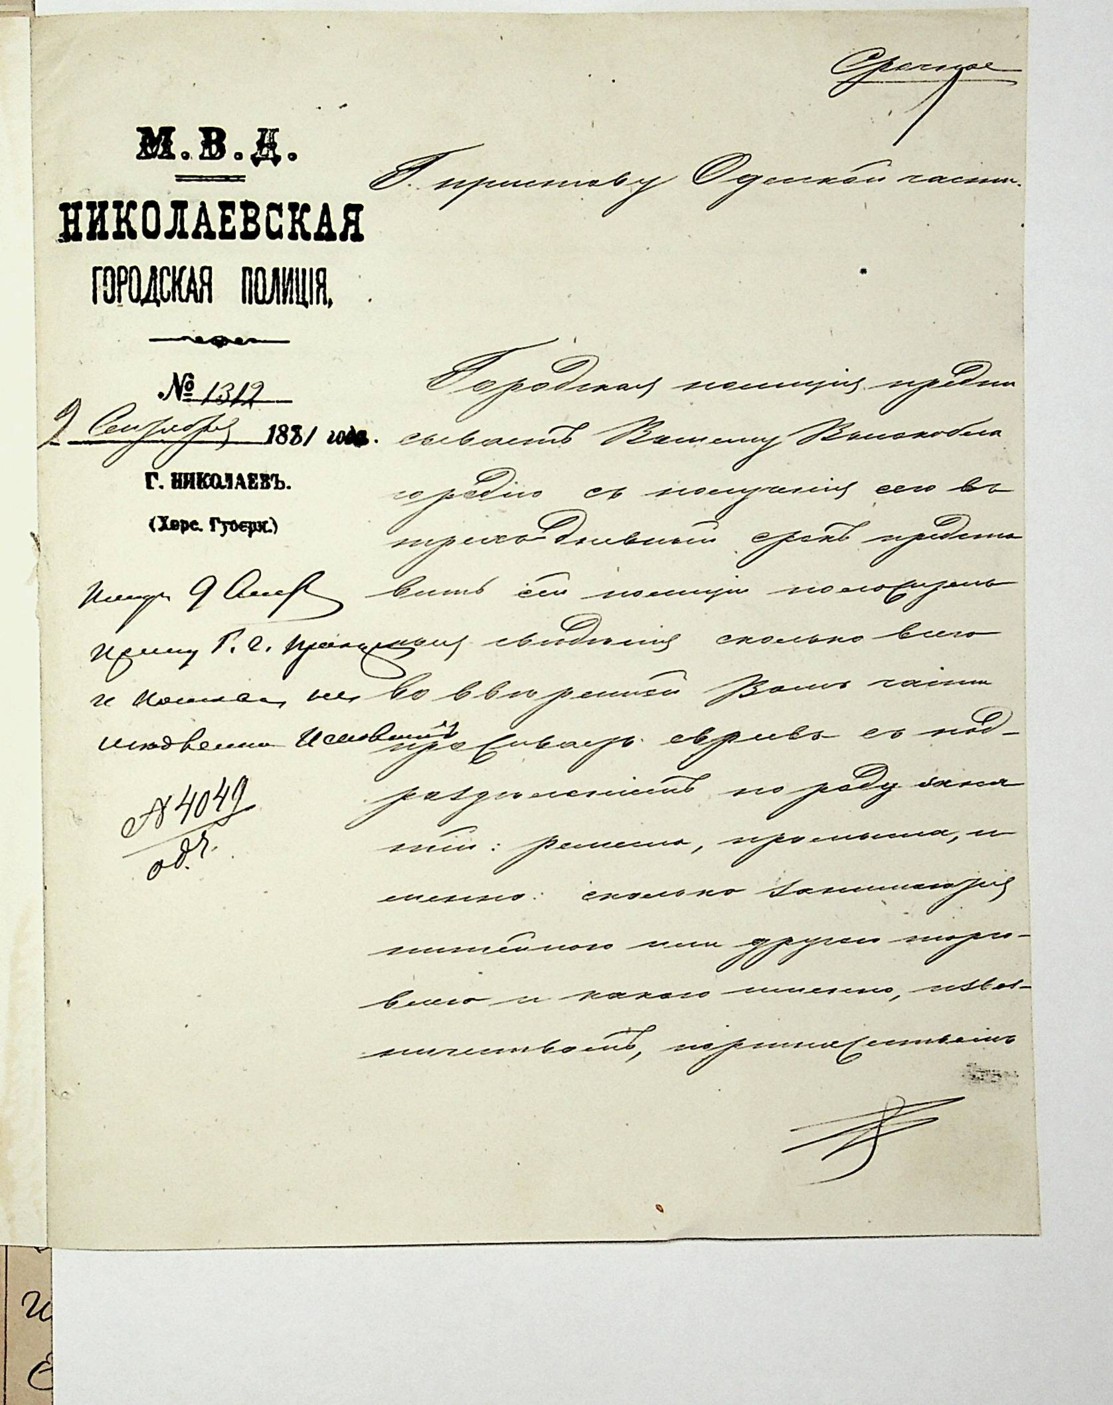 Срочное
М.В.Д.
НИКОЛАЕВСКАЯ
ГОРОДСКАЯ ПОЛИЦІЯ,
№ 1312
9 Сентября 1881 года.
Г. НИКОЛАЕВЪ.
(Херс. Губерн.)
Г. приставу Одесской части.
Городская полиція предпи
сываетъ Вашему Высокобла
городію съ полученія сего въ
трехъ дневный срокъ предста
вить сей полиціи положитель
ныя свѣдѣнія сколько всего
во ввѣренной Вамъ части
проживаетъ евреевъ съ под-
раздѣленіемъ по роду заня
тій: ремесла, промысла, и
менно: сколько занимающихся
питейною или другою торго-
влею и какою именно, извоз-
ничествомъ, портняжествомъ
9
Г. г.
и
№ 4049